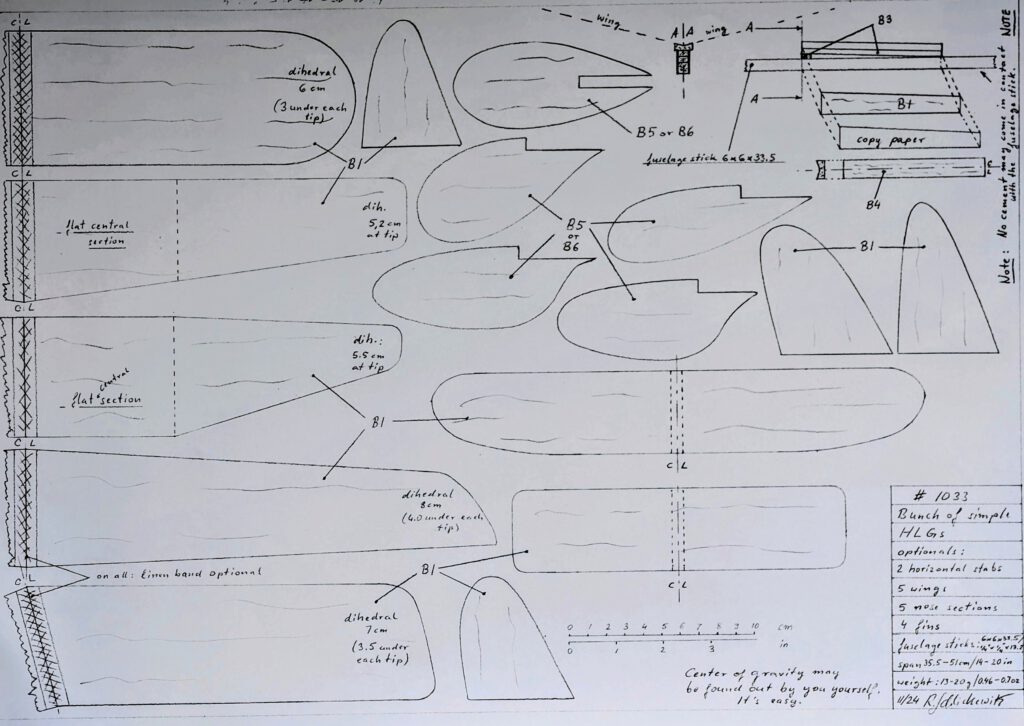 C L
dihedral
6 cm
(3 under each
tip)
B1
B5 or B6
wing
A A
wing
A
A
B3
Bt
copy paper
fuselage stick 6x6x33.5
B4
Note: No cement may come in contact NOTE
with the fuselage stick.
C L
flat central
section
dih.
5,2 cm
at tip
B5
or
B6
B1
C L
dih.:
5.5 cm
at tip
central
flat section
B1
C L
C L
dihedral
8cm
(4.0 under each
tip)
C L
on all: Linen band optional
B1
C L
C L
dihedral
7 cm
(3.5 under
each tip)
0 1 2 3 4 5 6 7 8 9 10 cm
0 1 2 3 in
Center of gravity may
be found out by you yourself.
It's easy.
# 1033
Bunch of simple
HLGs
optionals:
2 horizontal stabs
5 wings
5 nose sections
4 fins
fuselage stick: 6x6x33.5/
span 35.5-51cm/14-20in
weight: 13-20g/0.46-0.7oz
11/24